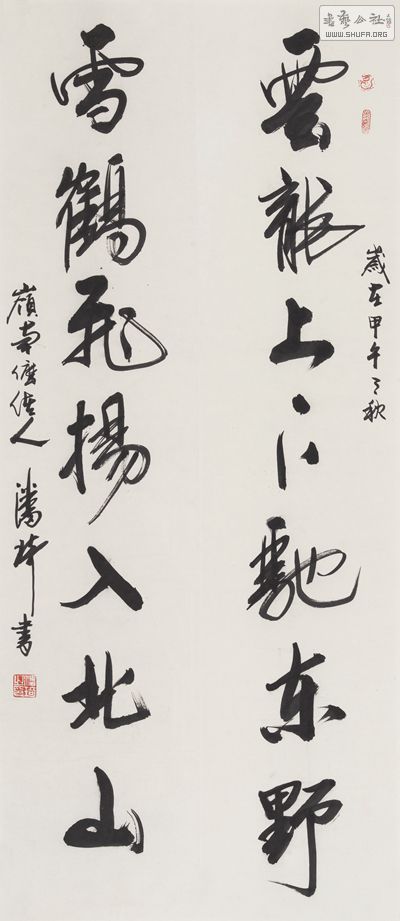 書藝公社
WWW.SHUFA.ORG
歲在甲午之秋
雲龍上下馳东野
雪鶴飛揚入北山
嶺南人 潘琦書